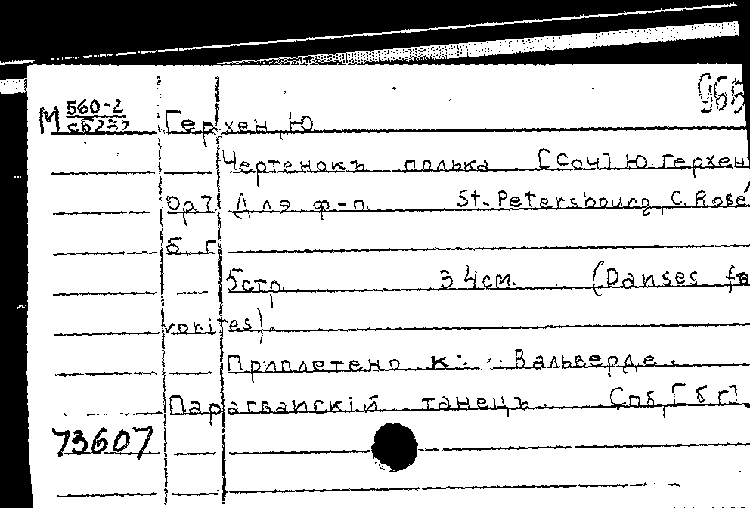 965
М 560-2
сб232 Герхен, Ю
Чертенокъ полька [Соч] Ю. Герхен
Ор 7 Для ф-п. St.-Petersbourg, C. Rosé
б. г.
5стр. 34см. (Danses fa
vorites).
Приплетено к: Вальверде.
Парагвайскій танецъ. Спб, [б г].
73607